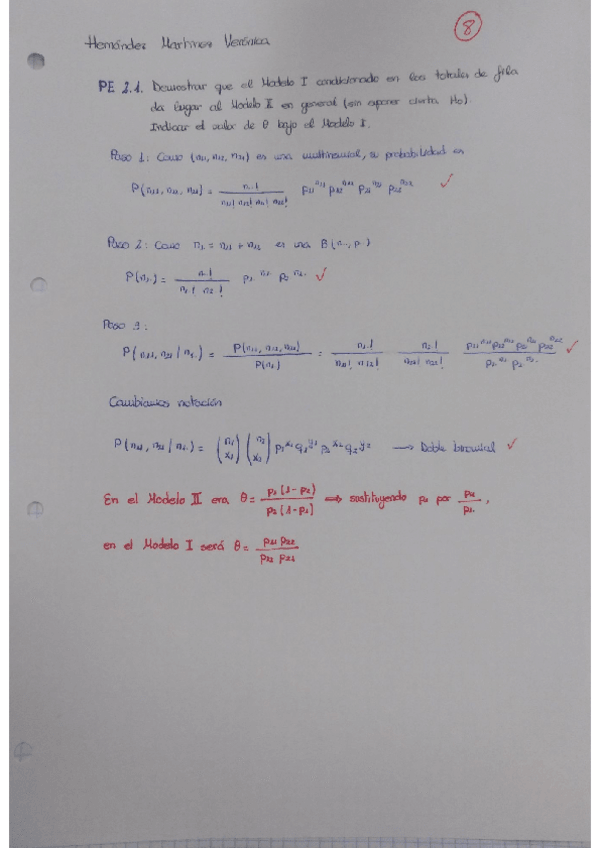 8
Hernández Martínez Verónica
PE 2.1. Demostrar que el Modelo I condicionado en los totales de fila
da lugar al Modelo II en general (sin suponer cierta H₀).
Indicar el valor de θ bajo el Modelo I.
Paso 1: Como (n₁₁, n₁₂, n₂₁) es una multinomial, su probabilidad es
P(n₁₁, n₁₂, n₂₁) = n..! / (n₁₁! n₁₂! n₂₁! n₂₂!) p₁₁^n₁₁ p₁₂^n₁₂ p₂₁^n₂₁ p₂₂^n₂₂ ✓
Paso 2: Como n₁. = n₁₁ + n₁₂ es una B(n.., p₁.)
P(n₁.) = n..! / (n₁.! n₂.!) p₁.^n₁. p₂.^n₂. ✓
Paso 3:
P(n₁₁, n₂₁ / n₁.) = P(n₁₁, n₁₂, n₂₁) / P(n₁.) = n₁.! / (n₁₁! n₁₂!) n₂.! / (n₂₁! n₂₂!) p₁₁^n₁₁ p₁₂^n₁₂ p₂₁^n₂₁ p₂₂^n₂₂ / (p₁.^n₁. p₂.^n₂.) ✓
Cambiamos notación
P(n₁₁, n₂₁ / n₁.) = (n₁ x₁) (n₂ x₂) p₁^x₁ q₁^y₁ p₂^x₂ q₂^y₂ → Doble binomial ✓
En el Modelo II era θ = p₁(1-p₂) / p₂(1-p₁) ⇒ sustituyendo pᵢ por pᵢ₁ / pᵢ. ,
en el Modelo I será θ = p₁₁ p₂₂ / p₁₂ p₂₁